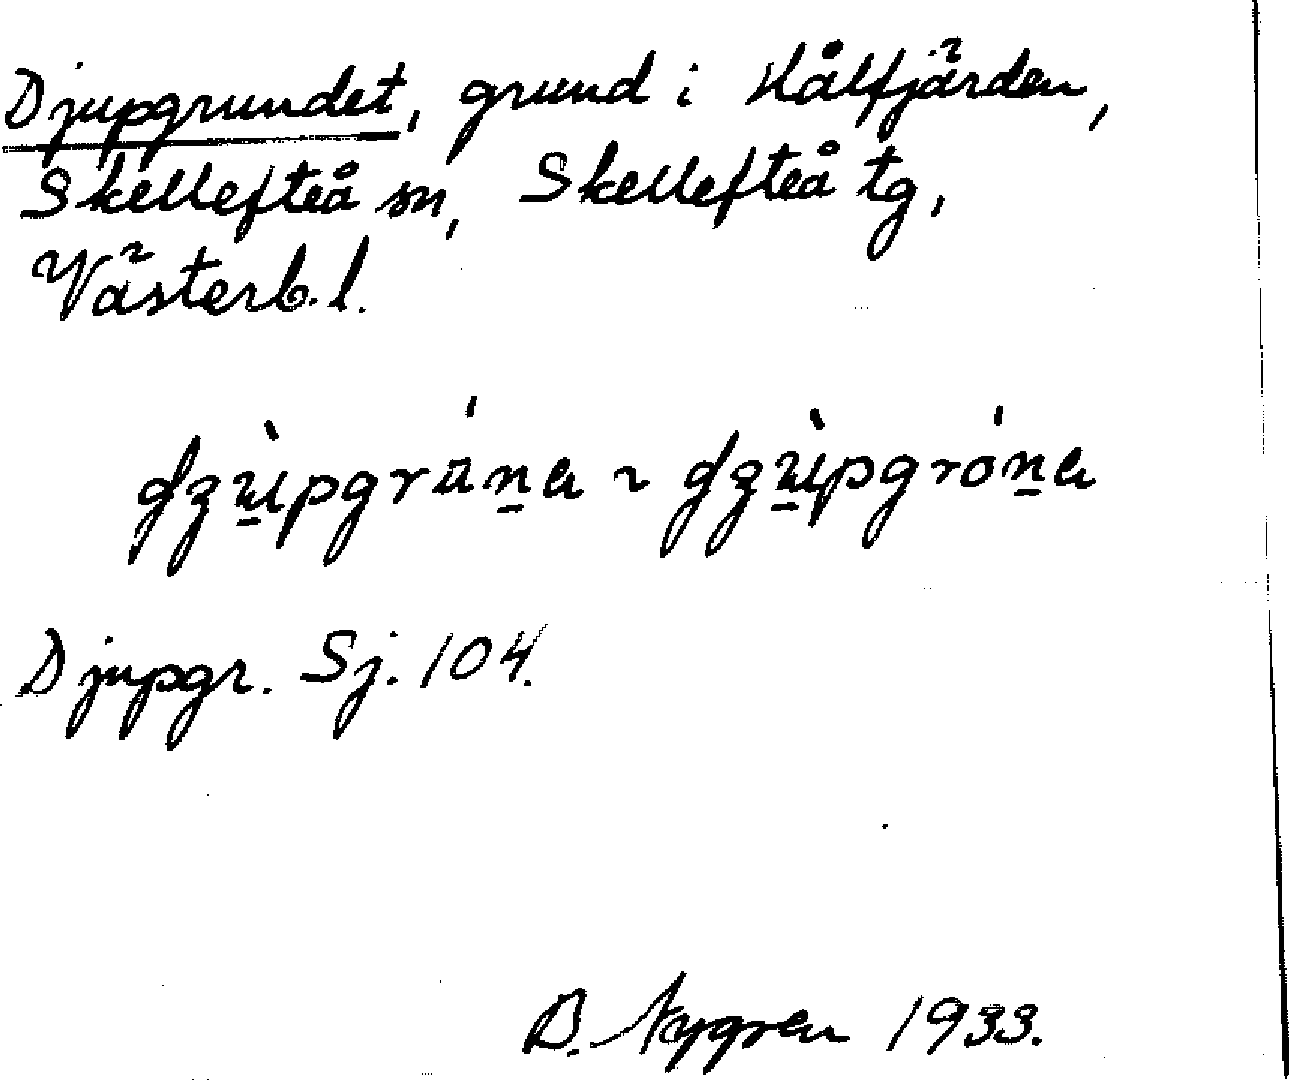 Djupgrundet, grund i Kålfjärden,
Skellefteå sn, Skellefteå tg,
Västerb. l.
Djupgr. Sj. 104.
B. Nygren 1933.